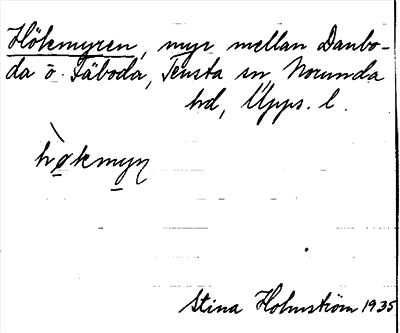 Hökmyren, myr mellan Danbo-
da o. Fäboda, Tensta sn, Norunda
hd, Upps. l.
høkmyṇ
Stina Holmström 1935